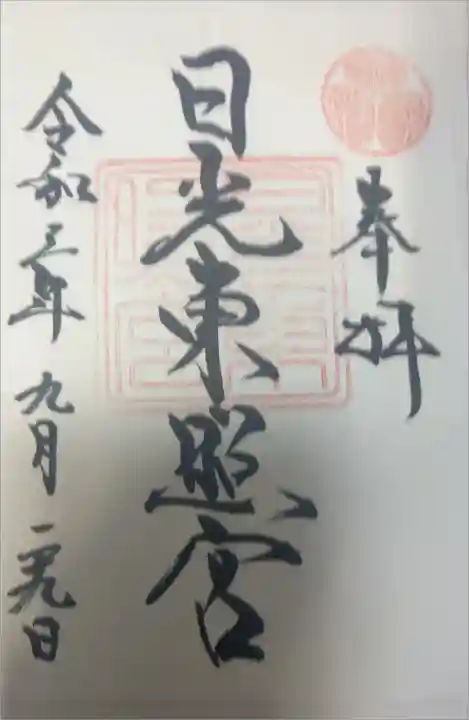 奉拝
日光東照宮
令和三年九月二九日